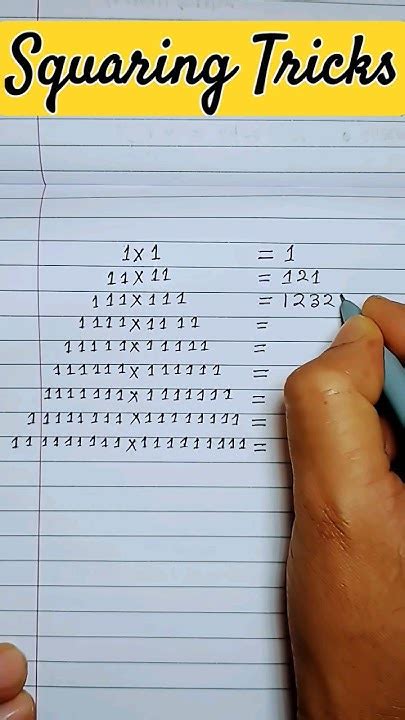 Squaring Tricks
1 x 1 = 1
11 x 11 = 121
111 x 111 = 1232
1111 x 1111 =
11111 x 11111 =
111111 x 111111 =
1111111 x 1111111 =
11111111 x 11111111 =
111111111 x 111111111 =